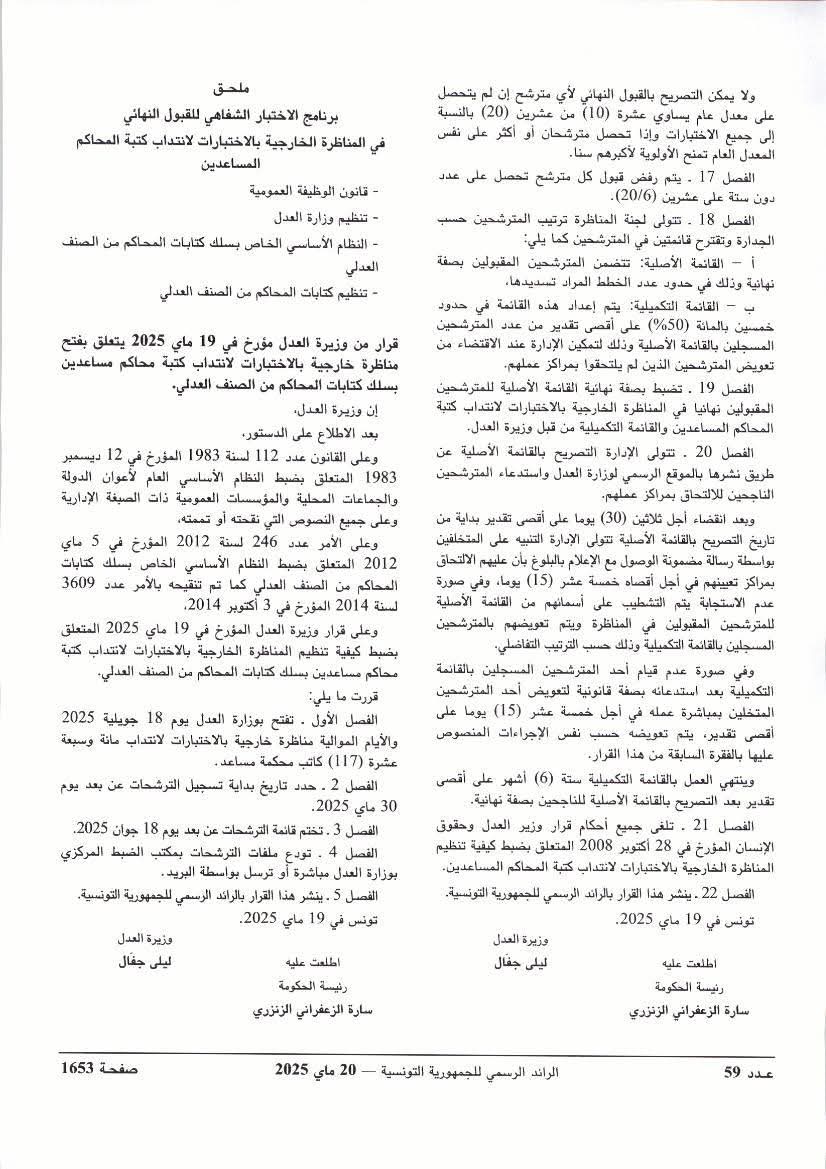 ولا يمكن التصريح بالقبول النهائي لأي مترشح إن لم يتحصل
على معدل عام يساوي عشرة (10) من عشرين (20) بالنسبة
إلى جميع الاختبارات وإذا تحصل مترشحان أو أكثر على نفس
المعدل العام تمنح الأولوية لأكبرهم سنا.
الفصل 17 ـ يتم رفض قبول كل مترشح تحصل على عدد
دون ستة على عشرين (20/6).
الفصل 18 ـ تتولى لجنة المناظرة ترتيب المترشحين حسب
الجدارة وتقترح قائمتين في المترشحين كما يلي:
أ – القائمة الأصلية: تتضمن المترشحين المقبولين بصفة
نهائية وذلك في حدود عدد الخطط المراد تسديدها،
ب – القائمة التكميلية: يتم إعداد هذه القائمة في حدود
خمسين بالمائة (50%) على أقصى تقدير من عدد المترشحين
المسجلين بالقائمة الأصلية وذلك لتمكين الإدارة عند الاقتضاء من
تعويض المترشحين الذين لم يلتحقوا بمراكز عملهم.
الفصل 19 ـ تضبط بصفة نهائية القائمة الأصلية للمترشحين
المقبولين نهائيا في المناظرة الخارجية بالاختبارات لانتداب كتبة
المحاكم المساعدين والقائمة التكميلية من قبل وزيرة العدل.
الفصل 20 ـ تتولى الإدارة التصريح بالقائمة الأصلية عن
طريق نشرها بالموقع الرسمي لوزارة العدل واستدعاء المترشحين
الناجحين للالتحاق بمراكز عملهم.
وبعد انقضاء أجل ثلاثين (30) يوما على أقصى تقدير بداية من
تاريخ التصريح بالقائمة الأصلية تتولى الإدارة التنبيه على المتخلفين
بواسطة رسالة مضمونة الوصول مع الإعلام بالبلوغ بأن عليهم الالتحاق
بمراكز تعيينهم في أجل أقصاه خمسة عشر (15) يوما، وفي صورة
عدم الاستجابة يتم التشطيب على أسمائهم من القائمة الأصلية
للمترشحين المقبولين في المناظرة ويتم تعويضهم بالمترشحين
المسجلين بالقائمة التكميلية وذلك حسب الترتيب التفاضلي.
وفي صورة عدم قيام أحد المترشحين المسجلين بالقائمة
التكميلية بعد استدعائه بصفة قانونية لتعويض أحد المترشحين
المتخلين بمباشرة عمله في أجل خمسة عشر (15) يوما على
أقصى تقدير، يتم تعويضه حسب نفس الإجراءات المنصوص
عليها بالفقرة السابقة من هذا القرار.
وينتهي العمل بالقائمة التكميلية ستة (6) أشهر على أقصى
تقدير بعد التصريح بالقائمة الأصلية للناجحين بصفة نهائية.
الفصل 21 ـ تلغى جميع أحكام قرار وزير العدل وحقوق
الإنسان المؤرخ في 28 أكتوبر 2008 المتعلق بضبط كيفية تنظيم
المناظرة الخارجية بالاختبارات لانتداب كتبة المحاكم المساعدين.
الفصل 22 ـ ينشر هذا القرار بالرائد الرسمي للجمهورية التونسية.
تونس في 19 ماي 2025.
وزيرة العدل
اطلعت عليه ليلى جفّال
رئيسة الحكومة
سارة الزعفراني الزنزري
ملحـق
برنامج الاختبار الشفاهي للقبول النهائي
في المناظرة الخارجية بالاختبارات لانتداب كتبة المحاكم
المساعدين
- قانون الوظيفة العمومية
- تنظيم وزارة العدل
- النظام الأساسي الخاص بسلك كتابات المحاكم من الصنف
العدلي
- تنظيم كتابات المحاكم من الصنف العدلي
قرار من وزيرة العدل مؤرخ في 19 ماي 2025 يتعلق بفتح
مناظرة خارجية بالاختبارات لانتداب كتبة محاكم مساعدين
بسلك كتابات المحاكم من الصنف العدلي.
إن وزيرة العدل،
بعد الاطلاع على الدستور،
وعلى القانون عدد 112 لسنة 1983 المؤرخ في 12 ديسمبر
1983 المتعلق بضبط النظام الأساسي العام لأعوان الدولة
والجماعات المحلية والمؤسسات العمومية ذات الصبغة الإدارية
وعلى جميع النصوص التي نقحته أو تممته،
وعلى الأمر عدد 246 لسنة 2012 المؤرخ في 5 ماي
2012 المتعلق بضبط النظام الأساسي الخاص بسلك كتابات
المحاكم من الصنف العدلي كما تم تنقيحه بالأمر عدد 3609
لسنة 2014 المؤرخ في 3 أكتوبر 2014،
وعلى قرار وزيرة العدل المؤرخ في 19 ماي 2025 المتعلق
بضبط كيفية تنظيم المناظرة الخارجية بالاختبارات لانتداب كتبة
محاكم مساعدين بسلك كتابات المحاكم من الصنف العدلي.
قررت ما يلي:
الفصل الأول ـ تفتح بوزارة العدل يوم 18 جويلية 2025
والأيام الموالية مناظرة خارجية بالاختبارات لانتداب مائة وسبعة
عشرة (117) كاتب محكمة مساعد.
الفصل 2 ـ حدد تاريخ بداية تسجيل الترشحات عن بعد يوم
30 ماي 2025.
الفصل 3 ـ تختم قائمة الترشحات عن بعد يوم 18 جوان 2025.
الفصل 4 ـ تودع ملفات الترشحات بمكتب الضبط المركزي
بوزارة العدل مباشرة أو ترسل بواسطة البريد.
الفصل 5 ـ ينشر هذا القرار بالرائد الرسمي للجمهورية التونسية.
تونس في 19 ماي 2025.
وزيرة العدل
اطلعت عليه ليلى جفّال
رئيسة الحكومة
سارة الزعفراني الزنزري
عـدد 59 الرائد الرسمي للجمهورية التونسية — 20 ماي 2025 صفحـة 1653